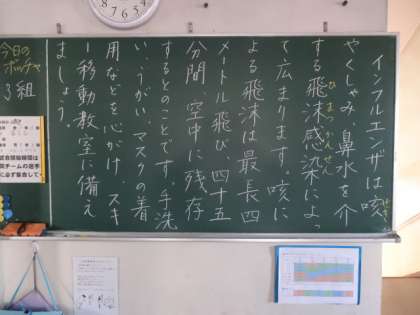 インフルエンザは咳
やくしゃみ 鼻水を介
する飛沫感染によっ
て広まります。咳に
よる飛沫は最長四
メートル飛び 四十五
分間 空中に残存
するとのことです。手洗
い、うがい、マスクの着
用などを心がけ、スキ
ー移動教室に備え
ましょう。
せき
ひまつかんせん
今日の
ボッチャ
3組